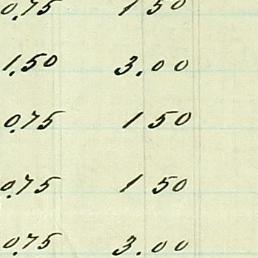 0.75 1 50
1.50 3.00
0.75 1 50
0.75 1 50
0.75 3.00